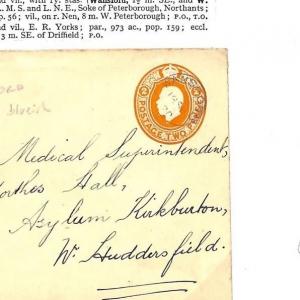 and vil., with ry. stas. (Wansford, 1½ m. SE., and W.
. M. S. and L. N. E., Soke of Peterborough, Northants;
p. 56; vil., on r. Nen, 8 m. W. Peterborough; P.O., T.O.
and vil., E. R. Yorks; par., 973 ac., pop. 159; eccl.
3 m. SE. of Driffield; P.O.
POSTAGE TWO PENCE
Medical Superintendent,
Hall,
Asylum Kirkburton,
Nr Huddersfield.